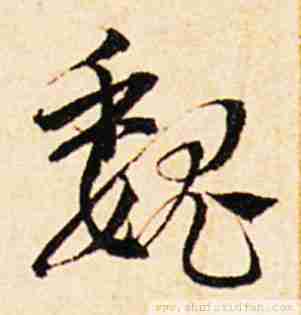 魏
www.shufazidian.com